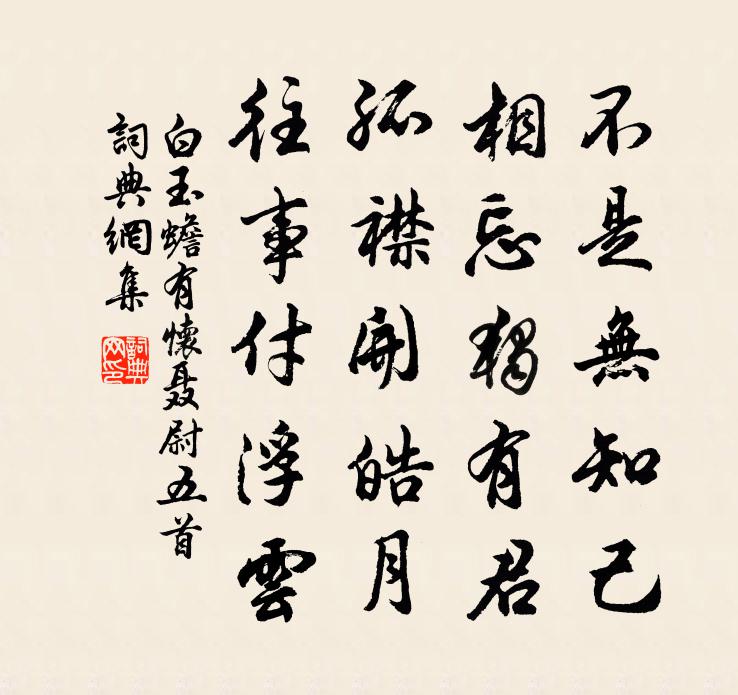 不是無知己
相忘獨有君
孤襟開皓月
往事付浮雲
白玉蟾有懷聶尉五首
詞典網集
詞典網印